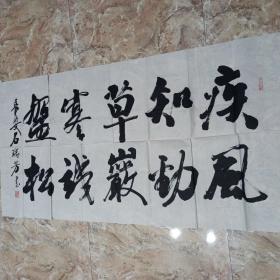 疾風
知勁
草嚴
寒識
盤松